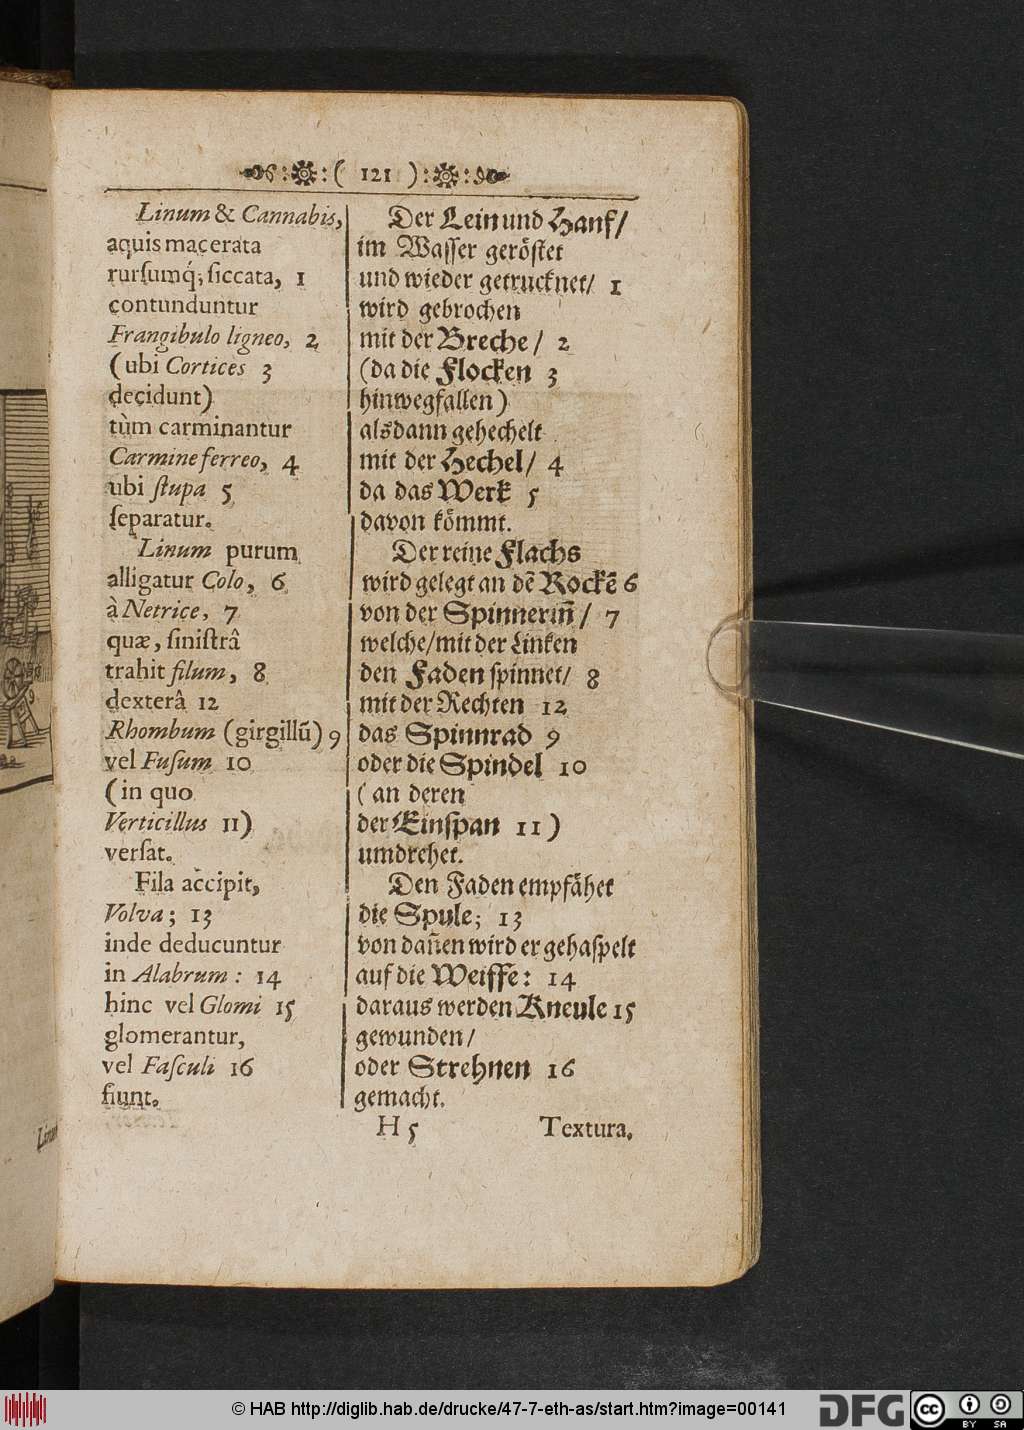 ( 121 )
Linum & Cannabis,
aquis macerata
rursumq́; siccata, 1
contunduntur
Frangibulo ligneo, 2
(ubi Cortices 3
decidunt)
tùm carminantur
Carmine ferreo, 4
ubi stupa 5
separatur.
Linum purum
alligatur Colo, 6
à Netrice, 7
quæ, sinistrâ
trahit filum, 8
dexterâ 12
Rhombum (girgillū) 9
vel Fusum 10
(in quo
Verticillus 11)
versat.
Fila accipit,
Volva; 13
inde deducuntur
in Alabrum: 14
hinc vel Glomi 15
glomerantur,
vel Fasculi 16
fiunt.
Der Lein und Hanf/
im Wasser geröstet
und wieder getrucknet/ 1
wird gebrochen
mit der Breche/ 2
(da die Flocken 3
hinwegfallen)
alsdann gehechelt
mit der Hechel/ 4
da das Werk 5
davon kömmt.
Der reine Flachs
wird gelegt an dē Rockē 6
von der Spinnerin̄/ 7
welche/mit der Linken
den Faden spinnet/ 8
mit der Rechten 12
das Spinnrad 9
oder die Spindel 10
(an deren
der Einspan 11)
umdrehet.
Den Faden empfähet
die Spule; 13
von dan̄en wird er gehaspelt
auf die Weiffe: 14
daraus werden Kneule 15
gewunden/
oder Strehnen 16
gemacht.
H 5 Textura.
© HAB http://diglib.hab.de/drucke/47-7-eth-as/start.htm?image=00141
DFG
cc BY SA